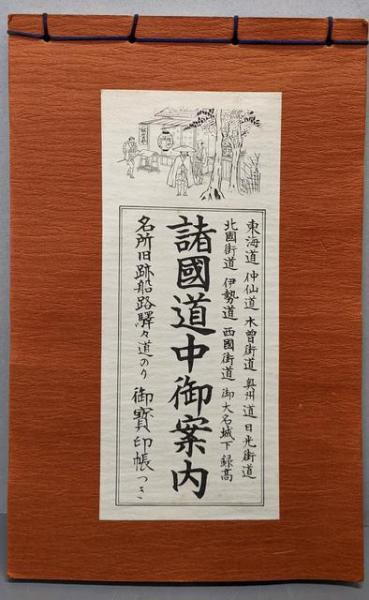 東海道 仲仙道 木曽街道 奥州道 日光街道
北國街道 伊勢道 西國街道 御大名城下 録高
諸國道中御案内
名所旧跡船路驛々道のり 御寳印帳つき